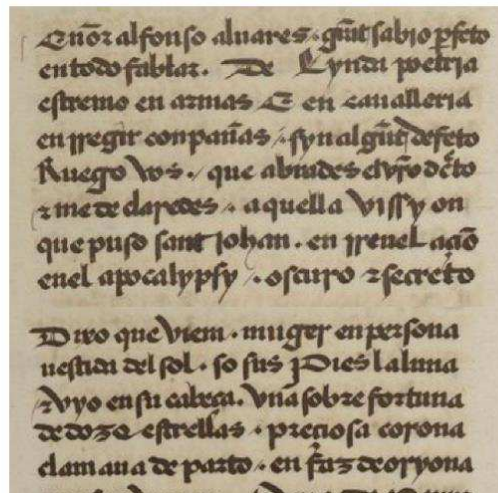 Señor alfonso aluares. grãt sabio p̃feto
en todo fablar. De Lynda poetria
estremo en armas E en caualleria
en rregir conpañas / syn algũt defeto
Ruego vos. que abrades el vr̃o dc̃to
z me declaredes. aquella vissyon
que puso sant iohan. en rreuelaçiõ
en el apocalypsy /. oscuro z secreto
Dixo que viera. muger en persona
uestida del sol. so sus Pies la luna
z vyo en su cabeça. vna sobre fortuna
de doze estrellas. preçiosa corona
clamaua de parto. en faz de oryona